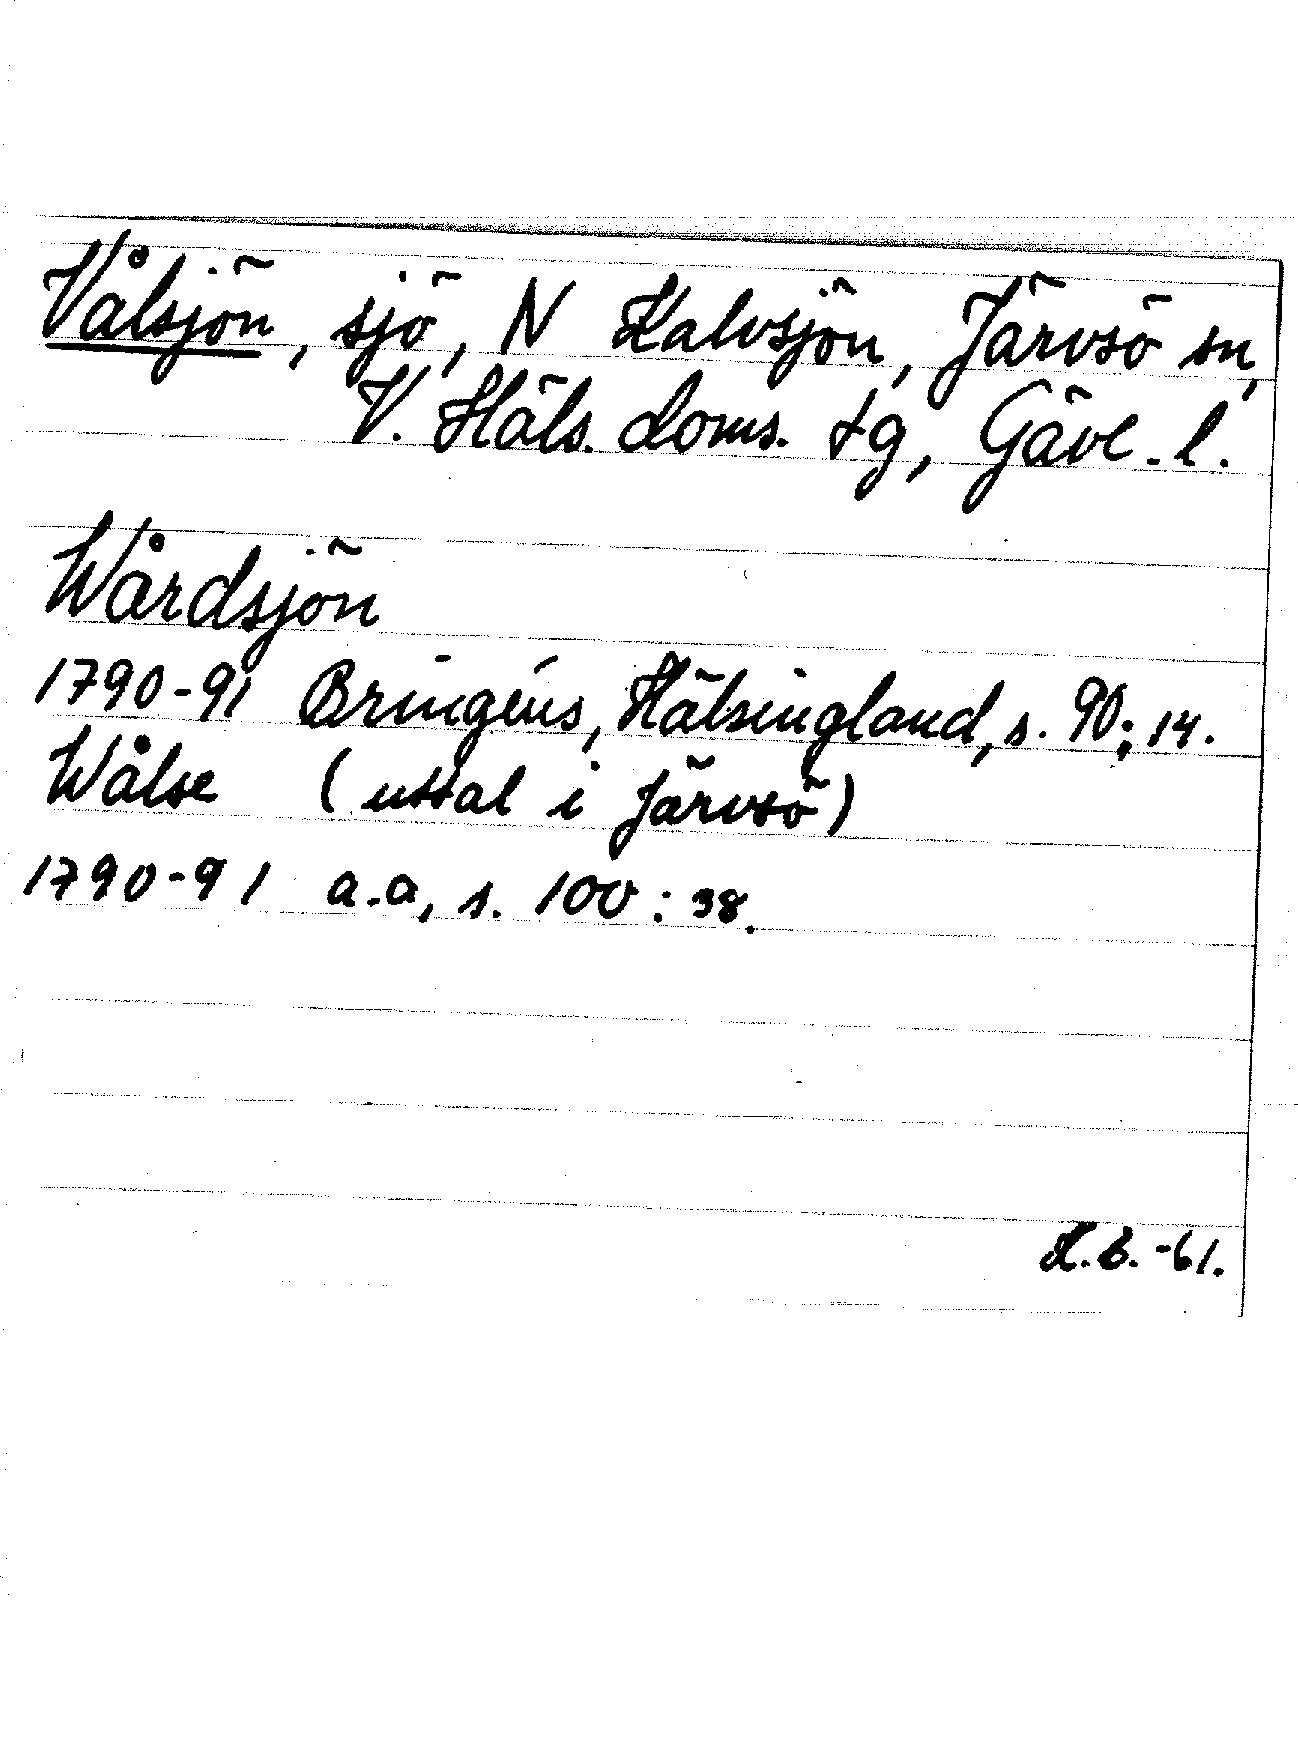 Vålsjön, sjö, N Kalvsjön, Järvsö sn,
V. Häls. doms. tg, Gävl. l.
Wårdsjön
1790-91 Bringéus, Hälsingland, s. 90:14.
Wålse (uttal i Järvsö)
1790-91 a.a, s. 100:38.
K.B.-61.